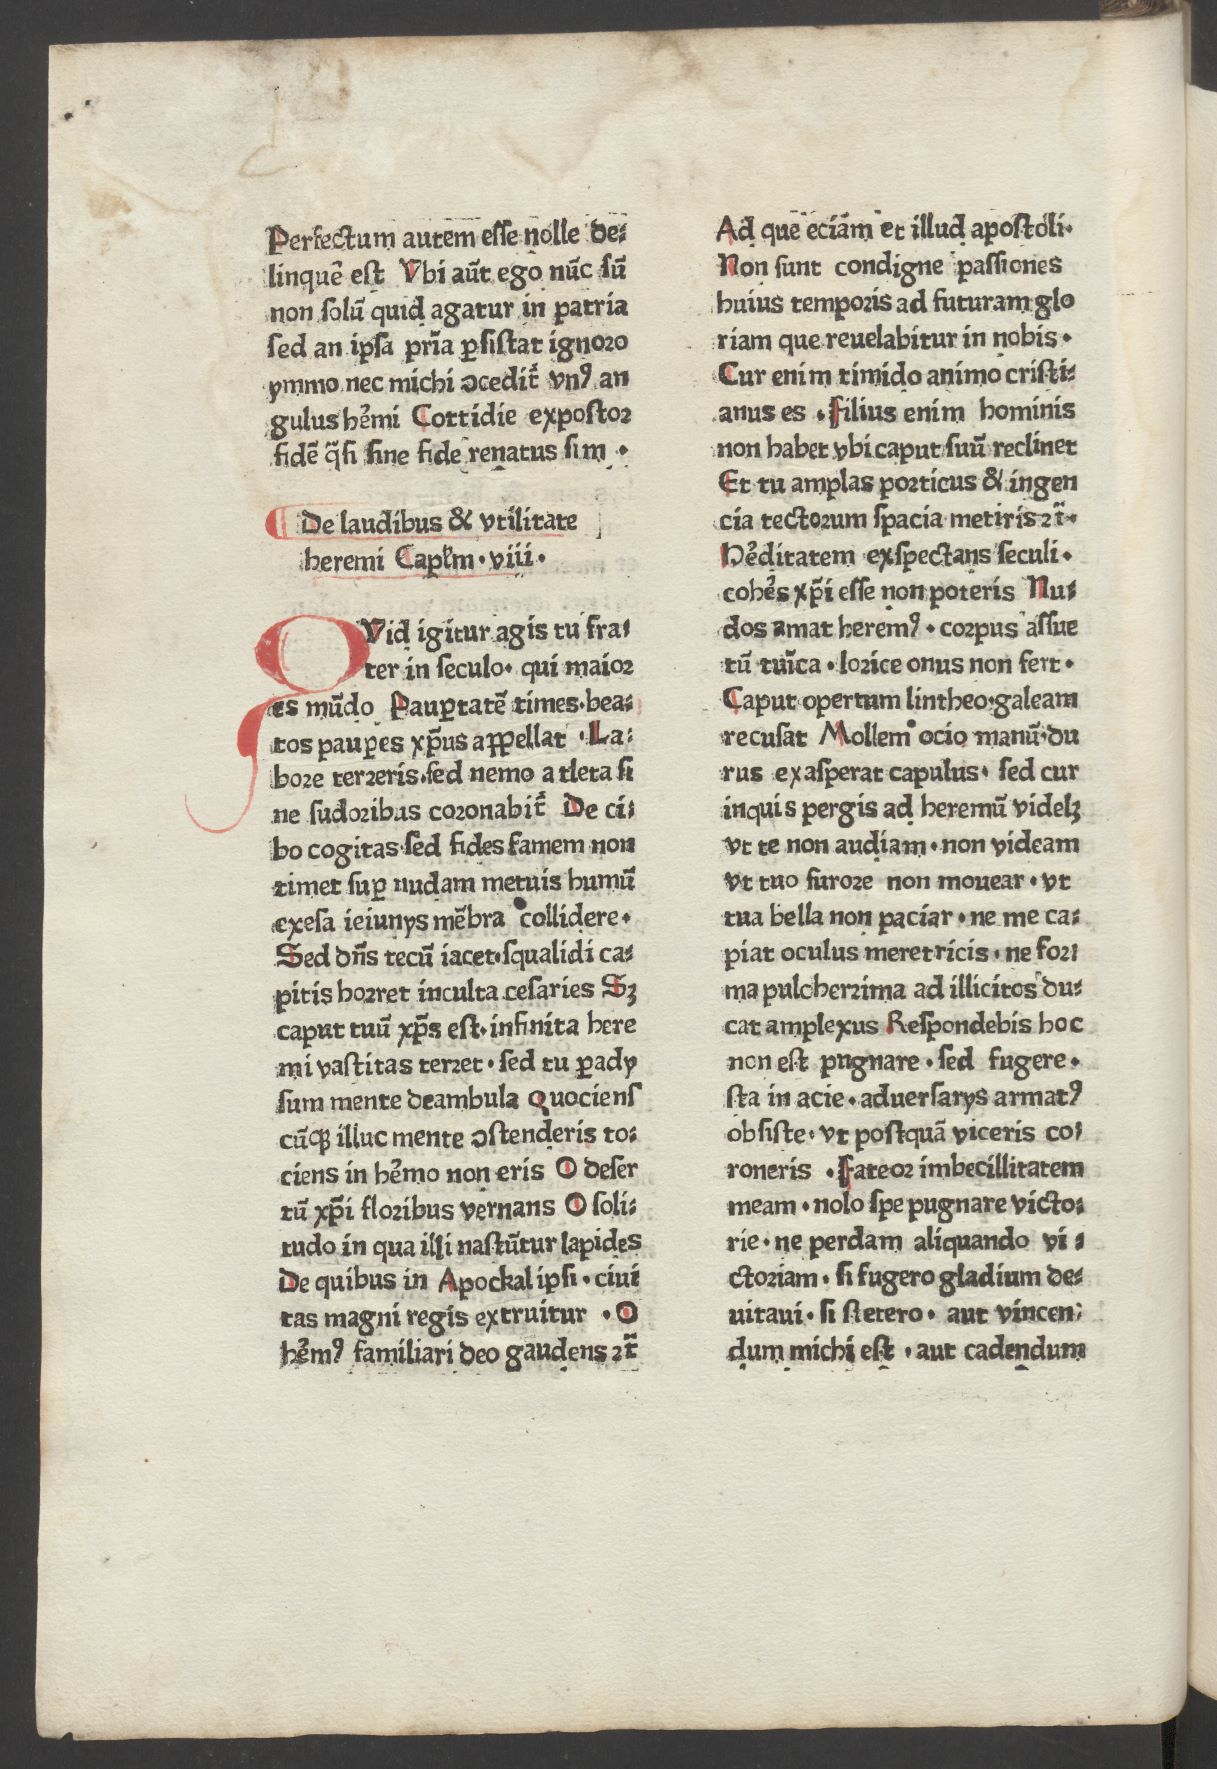 Perfectum autem esse nolle de⸗
linquē est Vbi aūt ego nūc sū
non solū quid agatur in patria
sed an ip̄sa pr̄ia ꝑsistat ignoro
ymmo nec michi ↄcedit᷑ vnꝰ an
gulus hēmi Cottidie expostor
fidē q̄si sine fide renatus sim ·
De laudibus & vtilitate
heremi Capľm · viii ·
QVid igitur agis tu fra⸗
ter in seculo · qui maior
es mūdo Pauꝑtatē times · bea⸗
tos pauꝑes xp̄us aꝑꝑellat · La⸗
bore terreris · sed nemo atleta si
ne sudoribus coronabit᷑ De ci⸗
bo cogitas · sed fides famem non
timet suꝑ nudam metuis humū
exesa ieiunys mēbra collidere ·
Sed dn̄s tecū iacet · squalidi ca⸗
pitis horret inculta cesaries Sꝫ
caput tuū xp̄s est · infinita here
mi vastitas terret · sed tu ꝑady
sum mente deambula Quociens
cūqꝫ illuc mente ↄstenderis to⸗
ciens in hēmo non eris O deser
tū xp̄i floribus vernans O soli⸗
tudo in qua illi nastūtur lapides
De quibus in Apockalipsi · ciui
tas magni regis extruitur · O
hēmꝰ familiari deo gaudens ⁊t̄
Ad que eciām et illud apostoli ·
Non sunt condigne passiones
huius temporis ad futuram glo
riam que reuelabitur in nobis ·
Cur enim timido animo cristi⸗
anus es · Filius enim hominis
non habet vbi caput suū reclinet
Et tu amplas porticus & ingen
cia tectorum spacia metiris ⁊t̄ ·
Hēditatem exspectans seculi ·
cohēs xp̄i esse non poteris Nu⸗
dos amat heremꝰ · corpus assue
tū tuīca · lorice onus non fert ·
Caput opertum lintheo · galeam
recusat Mollem ocio manū · du
rus exasperat capulus · sed cur
inquis pergis ad heremū videlꝫ
vt te non audiam · non videam
vt tuo furore non mouear · vt
tua bella non paciar · ne me ca⸗
piat oculus meretricis · ne for⸗
ma pulcherrima ad illicitos du⸗
cat amplexus Respondebis hoc
non est pugnare · sed fugere ·
sta in acie · aduersarys armatꝰ
obsiste · vt postquā viceris co⸗
roneris · Fateor imbecillitatem
meam · nolo spe pugnare victo⸗
rie · ne perdam aliquando vi⸗
ctoriam · si fugero gladium de⸗
uitaui · si stetero · aut vincen⸗
dum michi est · aut cadendum